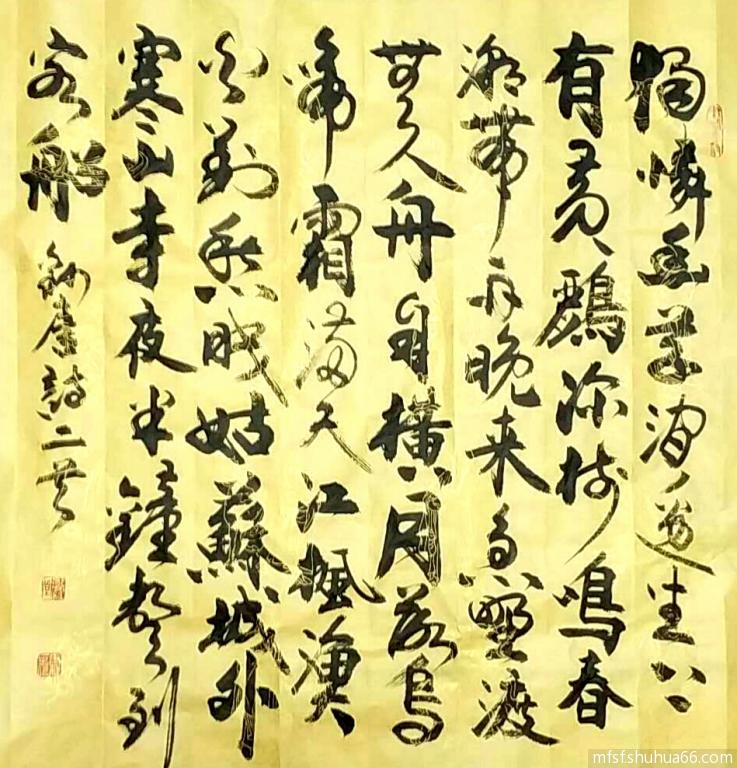 獨憐幽草澗邊生上
有黃鸝深樹鳴春
潮帶雨晚來急野渡
無人舟自橫月落烏
啼霜滿天江楓漁
火對愁眠姑蘇城外
寒山寺夜半鐘聲到
客船
錄唐詩二首
mfsfshuhua66.com